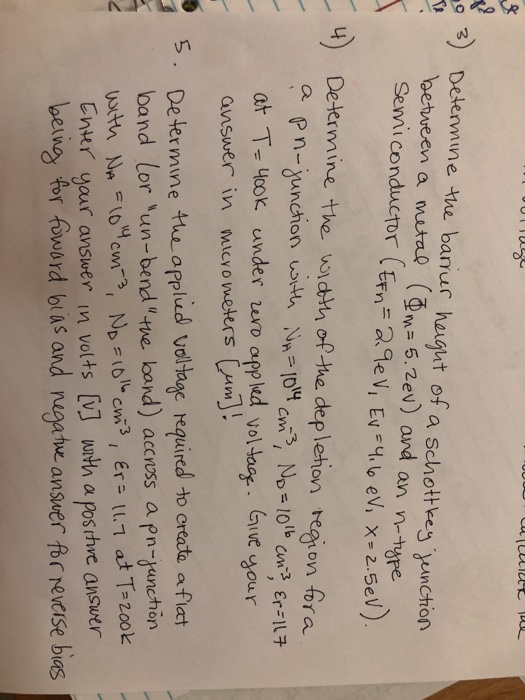 3) Determine the barrier height of a schottkey junction
between a metal (Φm = 5.2eV) and an n-type
Semiconductor (EFn = 2.9eV, Ev = 4.6 eV, x = 2.5eV).
4) Determine the width of the depletion region for a
a pn-junction with NA = 10^14 cm^-3, ND = 10^16 cm^-3, εr = 11.7
at T = 400K under zero applied voltage. Give your
answer in micrometers [μm]!
5. Determine the applied voltage required to create a flat
band (or "un-bend" the band) accross a pn-junction
with NA = 10^14 cm^-3, ND = 10^16 cm^-3, εr = 11.7 at T = 200K
Enter your answer in volts [V] with a positive answer
being for foward bias and negative answer for reverse bias